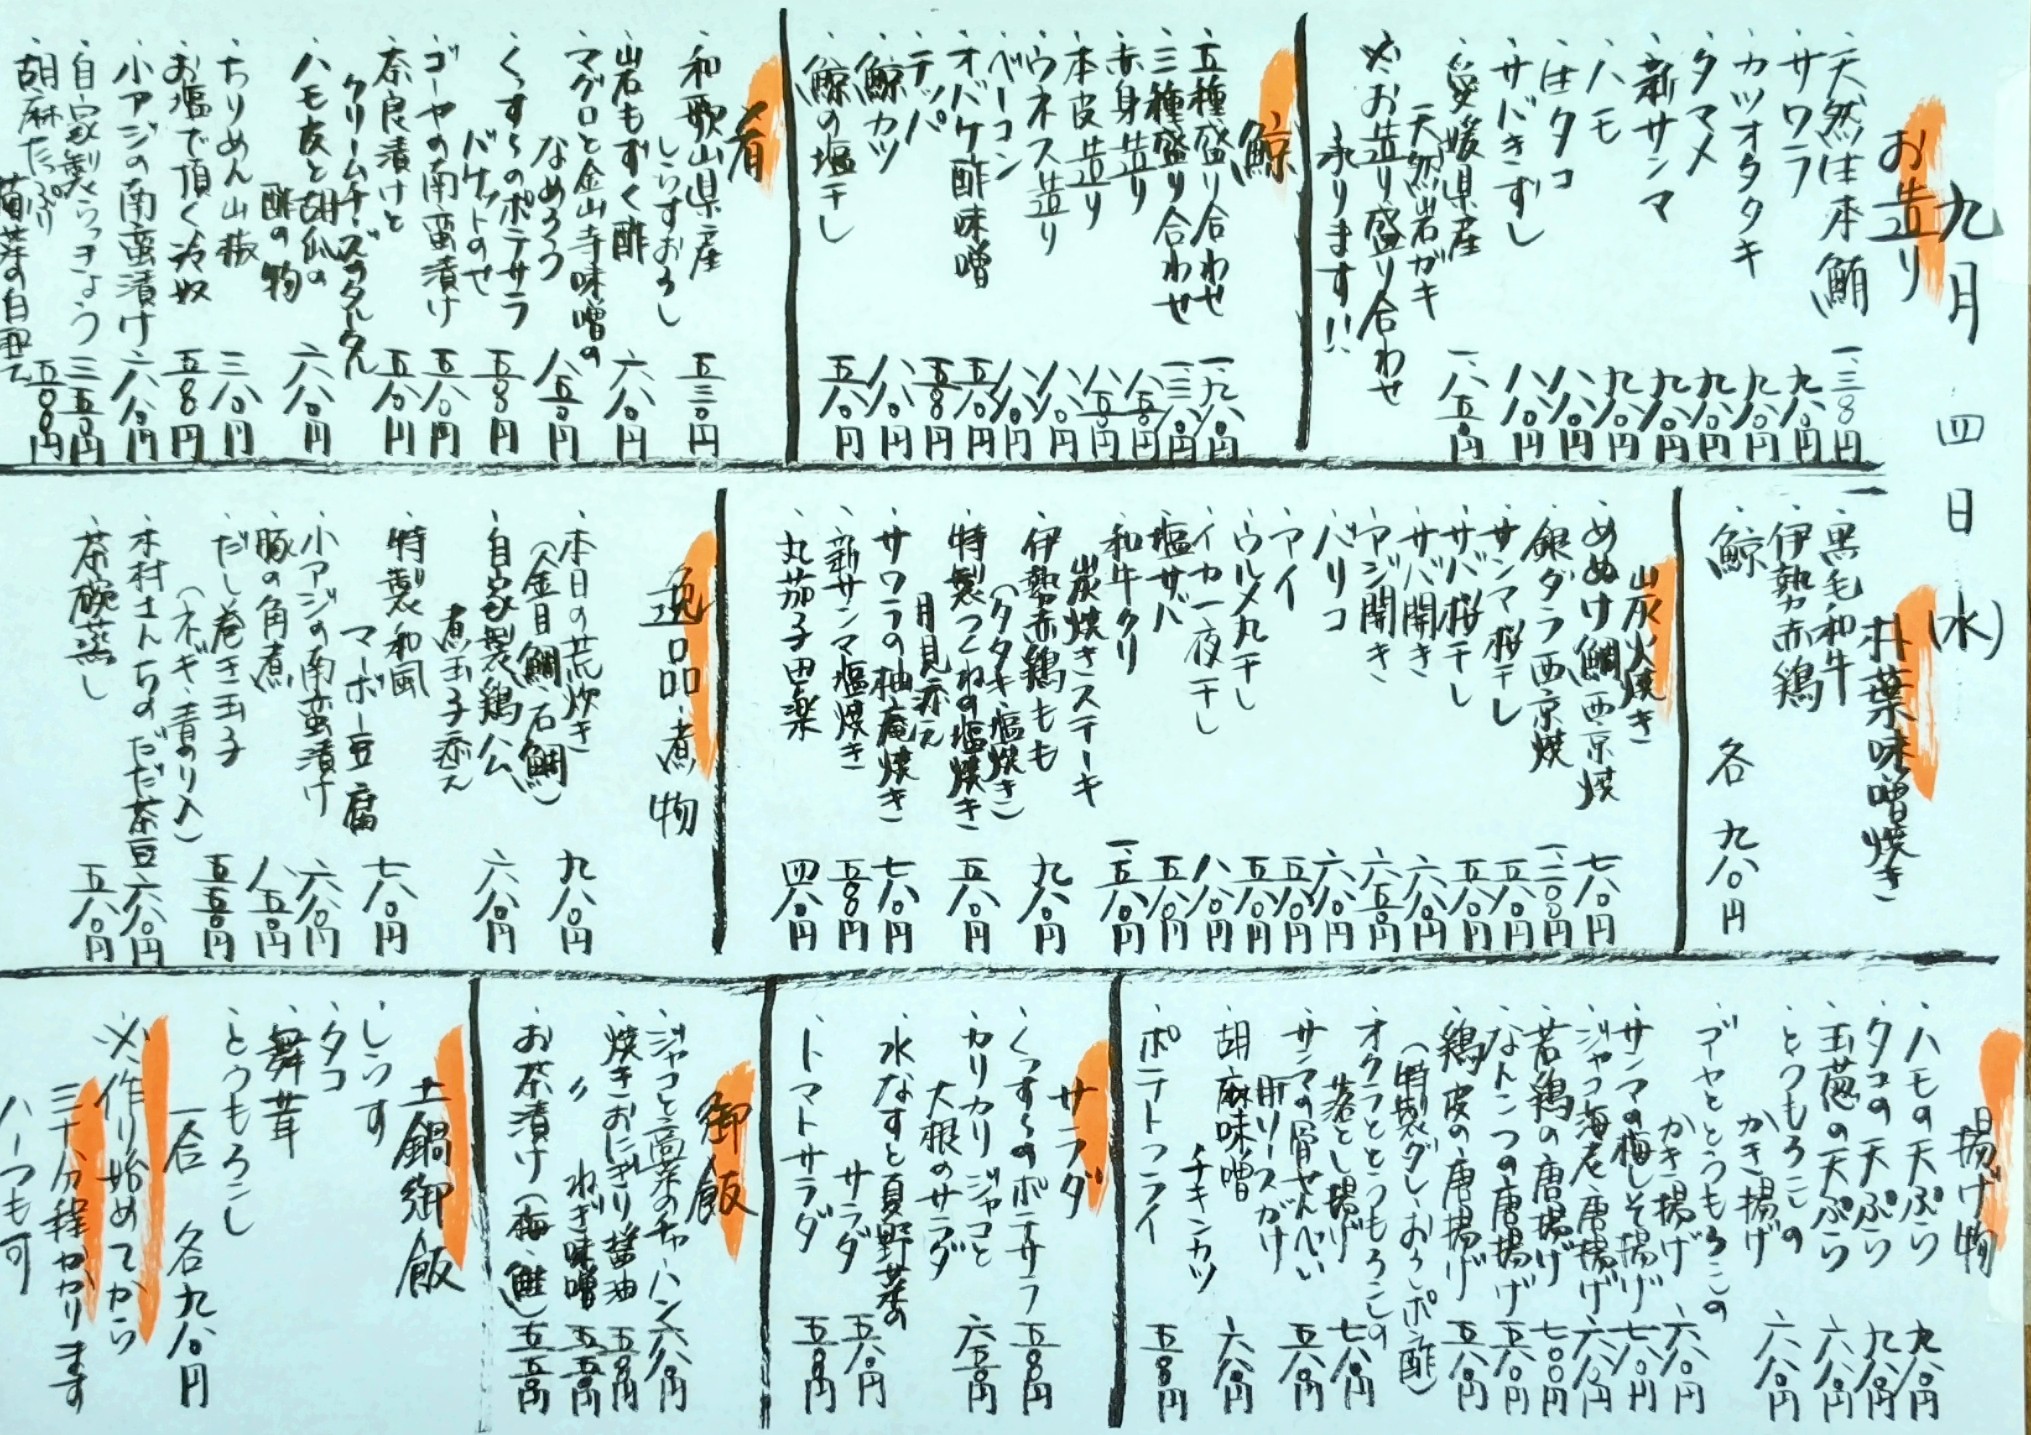 九月 四日 (水)
お造り
、天然生本鮪 一、三〇〇円
、サワラ 九八〇円
、カツオタタキ 九八〇円
、タマメ 九八〇円
、新サンマ 九八〇円
、ハモ 九八〇円
、生タコ 八八〇円
、サバきずし 八八〇円
、愛媛県産
天然岩ガキ 一、八五〇円
※お造り盛り合わせ
承ります!!
鯨
、五種盛り合わせ 一、九八〇円
、三種盛り合わせ 一、三八〇円
、赤身造り 八五〇円
、本皮造り 八五〇円
、ウネス造り 八八〇円
、ベーコン 八八〇円
、オバケ酢味噌 五八〇円
、テッパ 五五〇円
、鯨カツ 八八〇円
、鯨の塩干し 五八〇円
肴
、和歌山県産
しらすおろし 五三〇円
、岩もずく酢 六八〇円
、マグロと金山寺味噌の
なめろう 八五〇円
、くっすぅのポテサラ
バケットのせ 五五〇円
、ゴーヤの南蛮漬け 五八〇円
、奈良漬けと
クリームチーズのタルタル 五八〇円
、ハモ皮と胡瓜の
酢の物 六八〇円
、ちりめん山椒 三八〇円
、お塩で頂く冷奴 五五〇円
、小アジの南蛮漬け 六八〇円
、自家製らっきょう 三五〇円
、胡麻たっぷり
菊菜の白和え 五五〇円
朴葉味噌焼き
、黒毛和牛
、伊勢赤鶏
、鯨
各 九八〇円
炭火焼き
、めぬけ鯛西京焼 七八〇円
、銀ダラ西京焼 一、二〇〇円
、サンマ桜干し 五八〇円
、サバ桜干し 五八〇円
、サバ開き 六八〇円
、アジ開き 六五〇円
、バリコ 六八〇円
、アイ 五五〇円
、ウルメ丸干し 五五〇円
、イカ一夜干し 八八〇円
、塩サバ 五八〇円
、和牛クリ
炭焼きステーキ 一、五八〇円
、伊勢赤鶏もも
(タタキ・塩焼き) 九八〇円
、特製つくねの塩焼き
月見添え 五八〇円
、サワラの柚庵焼き 七八〇円
、新サンマ塩焼き 五五〇円
、丸茄子田楽 四八〇円
逸品・煮物
、本日の荒炊き
(金目鯛・石鯛) 九八〇円
、自家製鶏ハム
煮玉子添え 六八〇円
、特製和風
マーボー豆腐 七八〇円
、小アジの南蛮漬け 六八〇円
、豚の角煮 八五〇円
、だし巻き玉子
(ネギ・青のり入) 五五〇円
、木村さんちのだだ茶豆 六八〇円
、茶碗蒸し 五八〇円
揚げ物
、ハモの天ぷら 九八〇円
、タコの天ぷら 九八〇円
、玉葱の天ぷら 六八〇円
、とうもろこしの
かき揚げ 六八〇円
、ゴーヤととうもろこしの
かき揚げ 六八〇円
、サンマの梅しそ揚げ 七八〇円
、ジャコ海老唐揚げ 六八〇円
、若鶏の唐揚げ 七〇〇円
、なんこつの唐揚げ 五八〇円
、鶏皮の唐揚げ 五八〇円
(特製ダレ・おろしポン酢)
、オクラととうもろこしの
落とし揚げ 七八〇円
、サンマの骨せんべい
肝ソースがけ 五八〇円
、胡麻味噌
チキンカツ 六八〇円
、ポテトフライ 五五〇円
サラダ
、くっすぅのポテサラ 五五〇円
、カリカリジャコと
大根のサラダ 六五〇円
、水なすと夏野菜の
サラダ 五八〇円
、トマトサラダ 五五〇円
御飯
、ジャコと高菜のチャーハン 六八〇円
、焼きおにぎり醤油 五五〇円
、〃 ねぎ味噌 五五〇円
、お茶漬け(梅・鮭) 五五〇円
土鍋御飯
、しらす
、タコ
、舞茸
、とうもろこし
一合 各九八〇円
※作り始めてから
三十分程かかります
ハーフも可